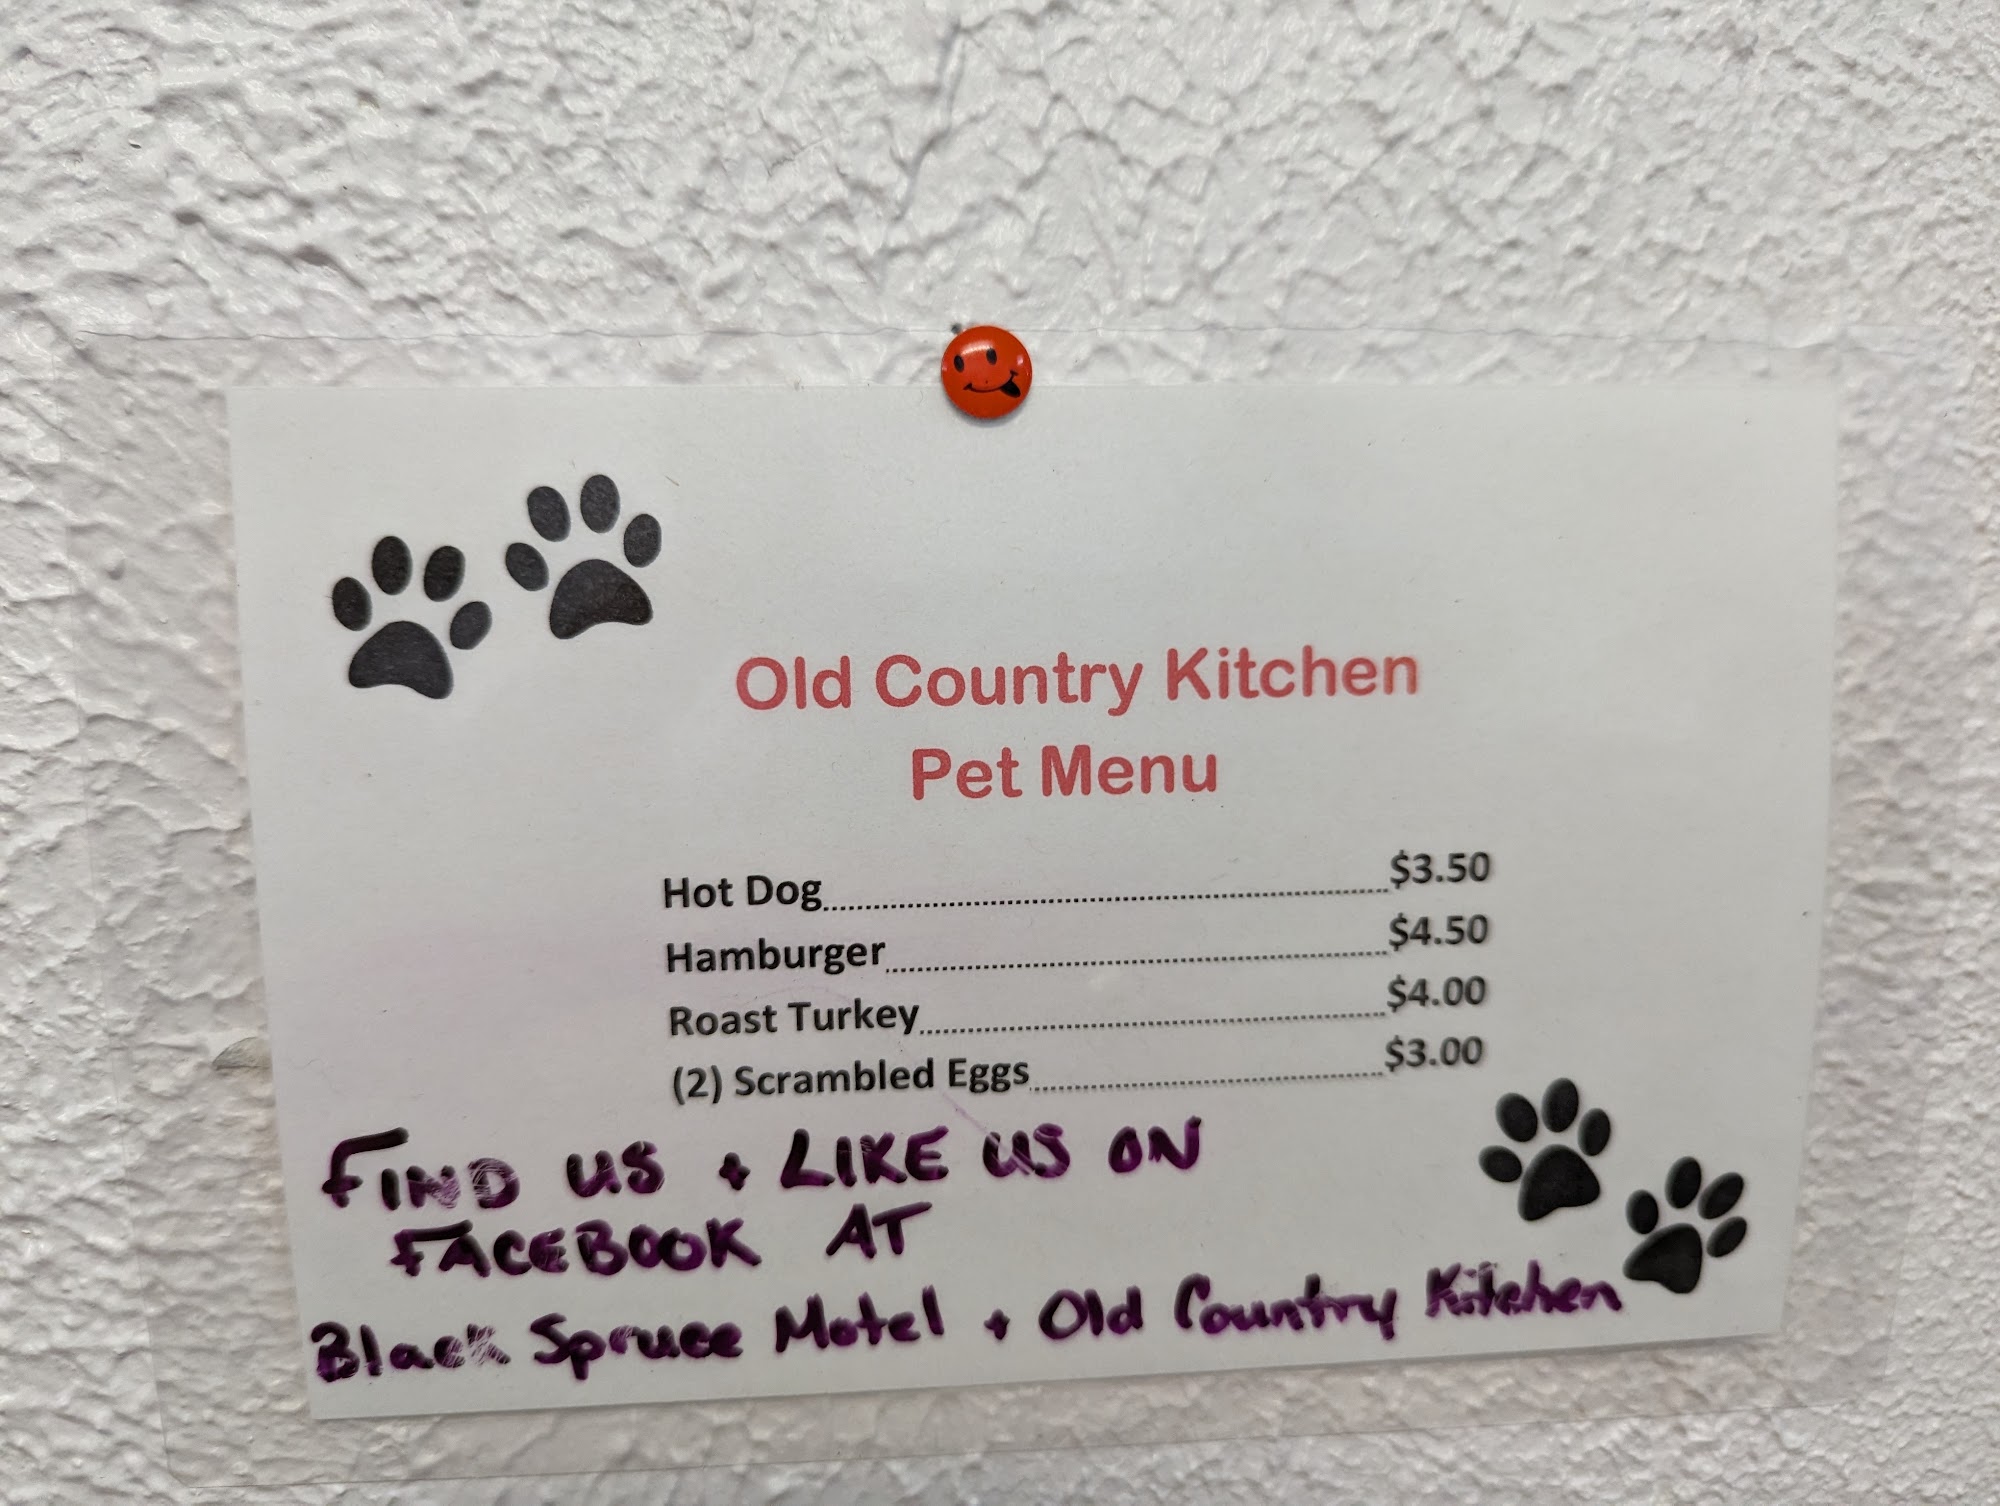 Old Country Kitchen
Pet Menu
Hot Dog $3.50
Hamburger $4.50
Roast Turkey $4.00
(2) Scrambled Eggs $3.00
FIND US + LIKE US ON
FACEBOOK AT
Black Spruce Motel + Old Country Kitchen